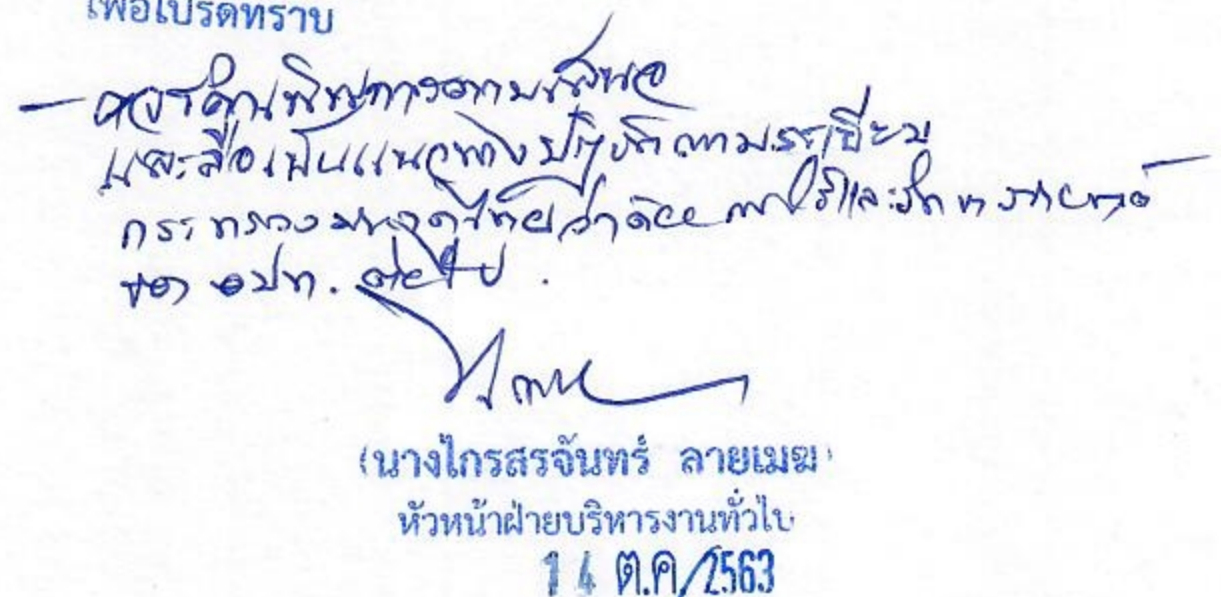 เพื่อโปรดทราบ
- ควรดำเนินการตามเสนอ
และถือเป็นแนวทางปฏิบัติตามระเบียบ
กระทรวงมหาดไทยว่าด้วย
ของ อปท. ต่อไป.
(นางไกรสรจันทร์ ลายเมฆ)
หัวหน้าฝ่ายบริหารงานทั่วไป
14 ต.ค/2563